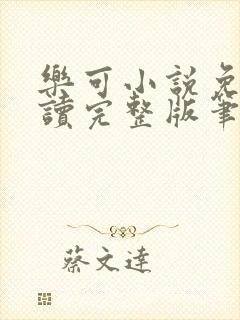 樂可小說免
讀完整版筆
蔡文達